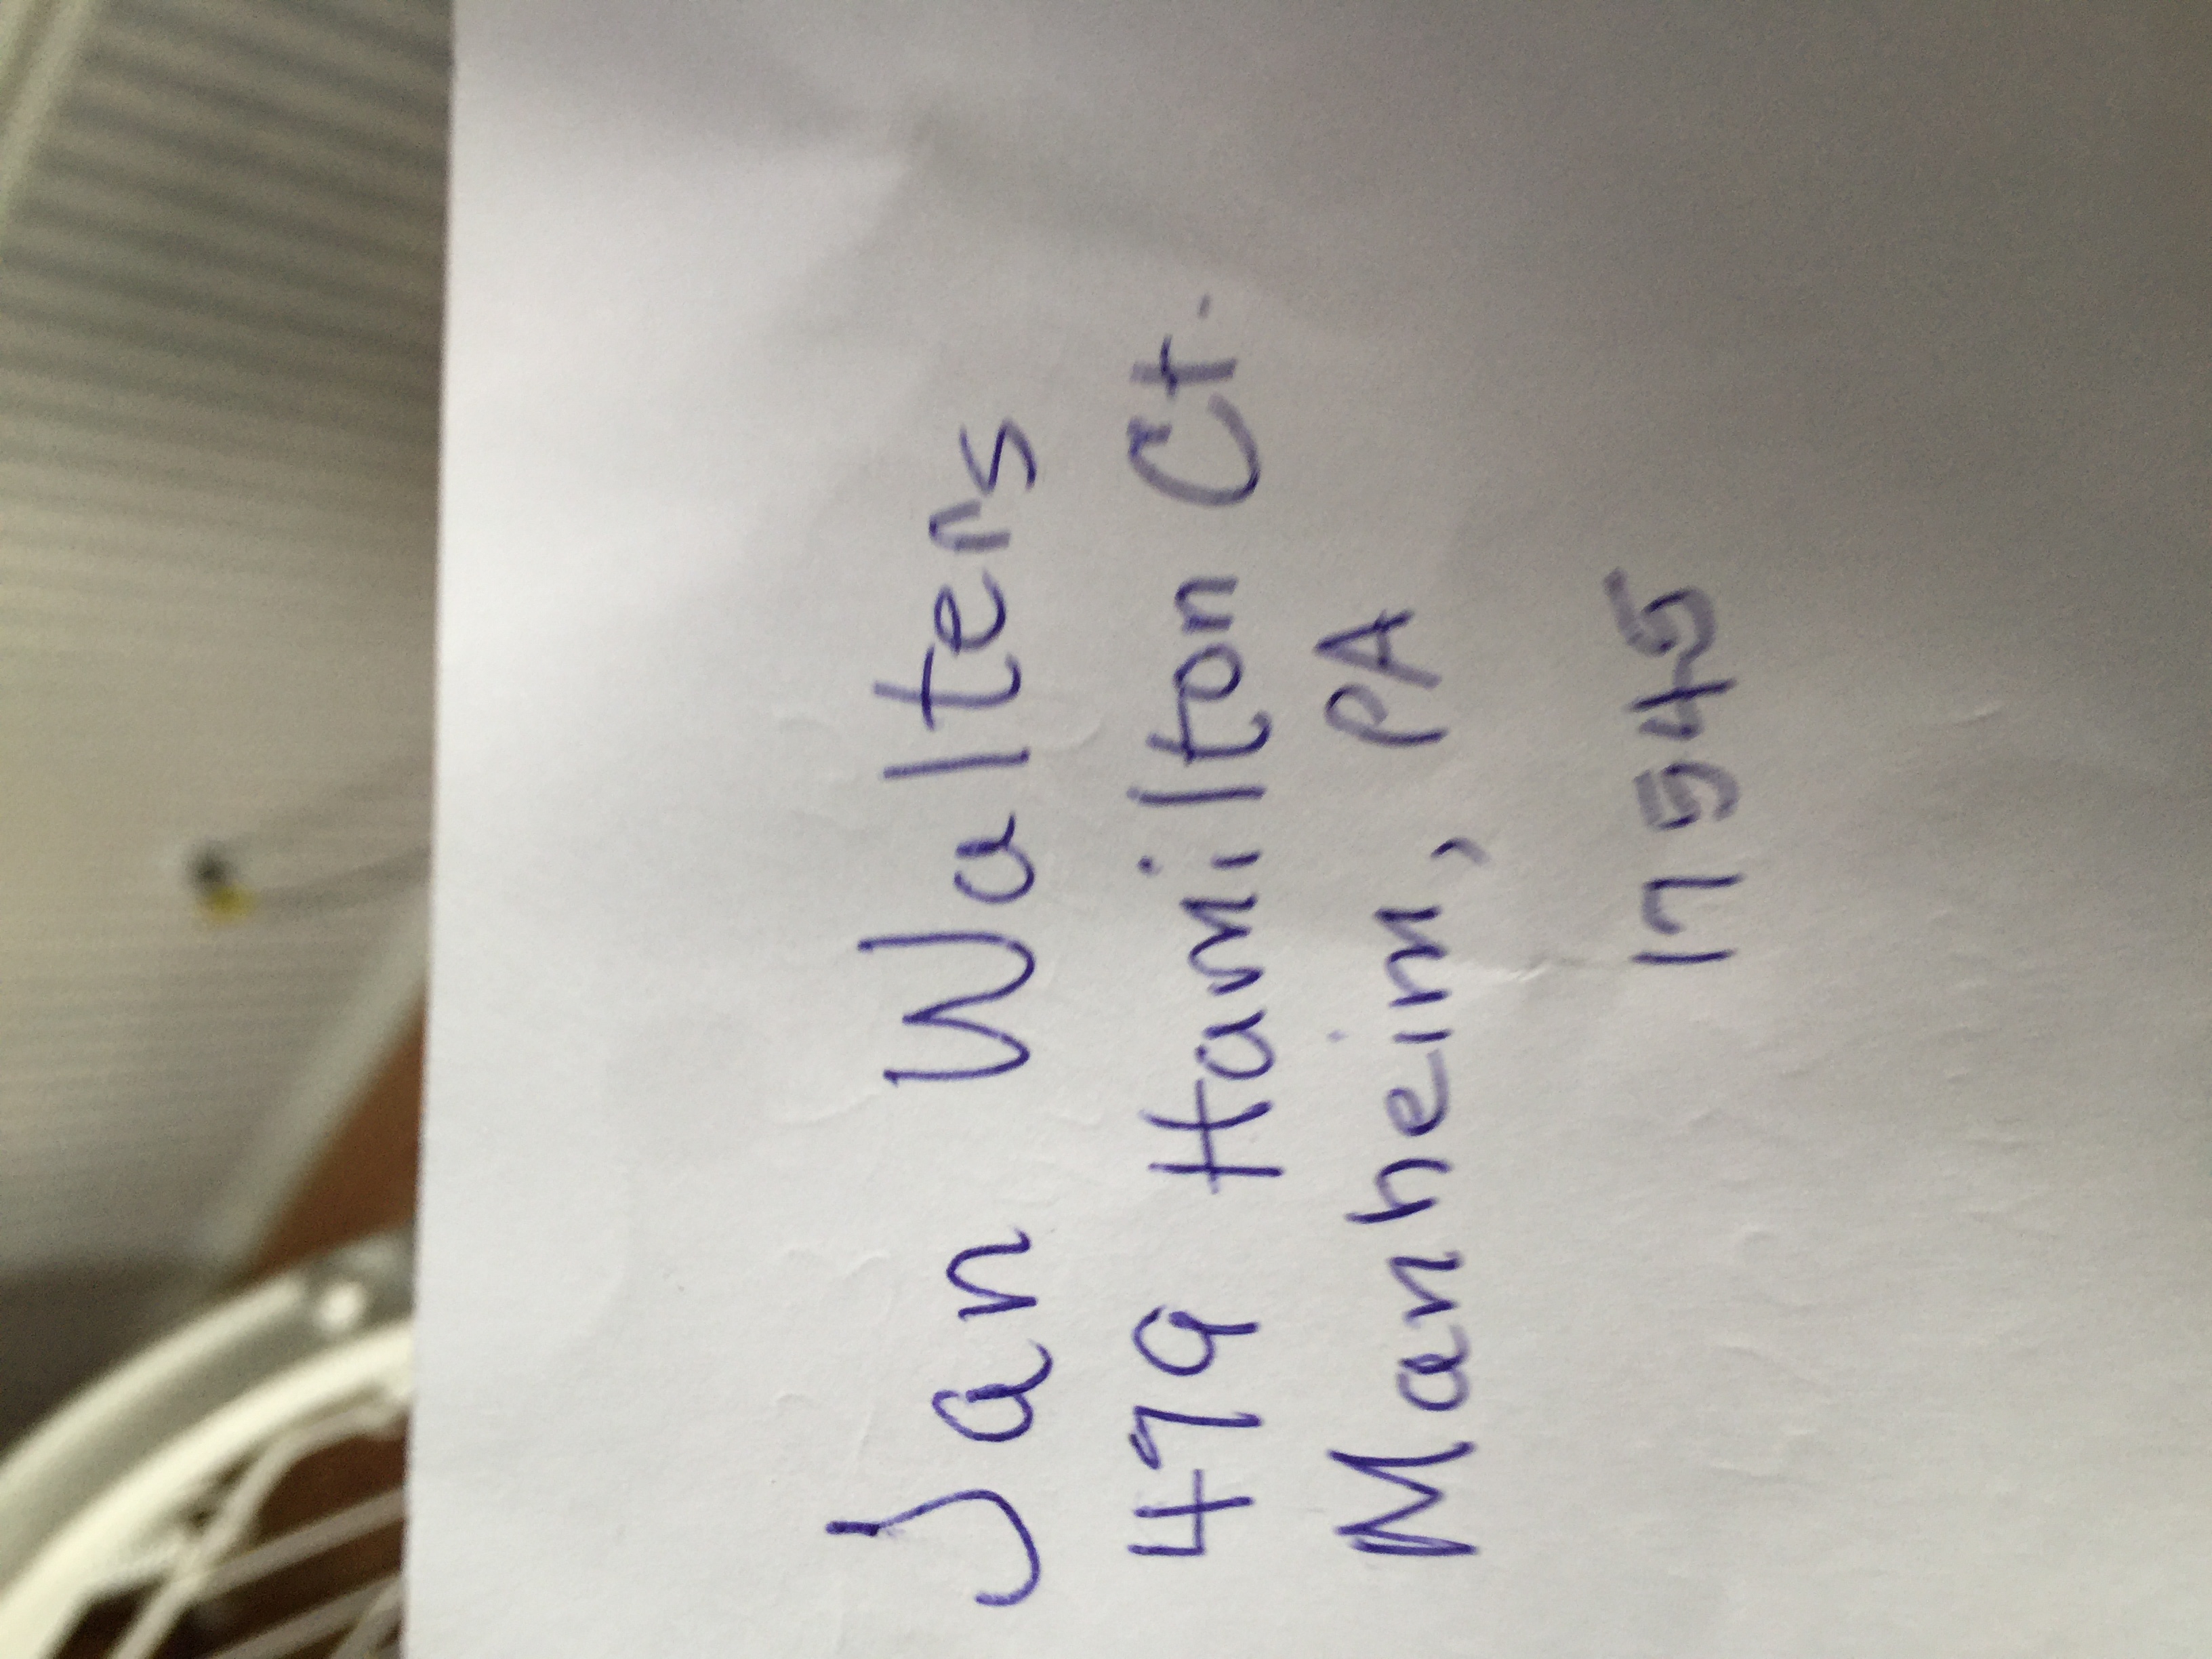 Jan Walters
479 Hamilton Ct.
Manheim, PA
17545